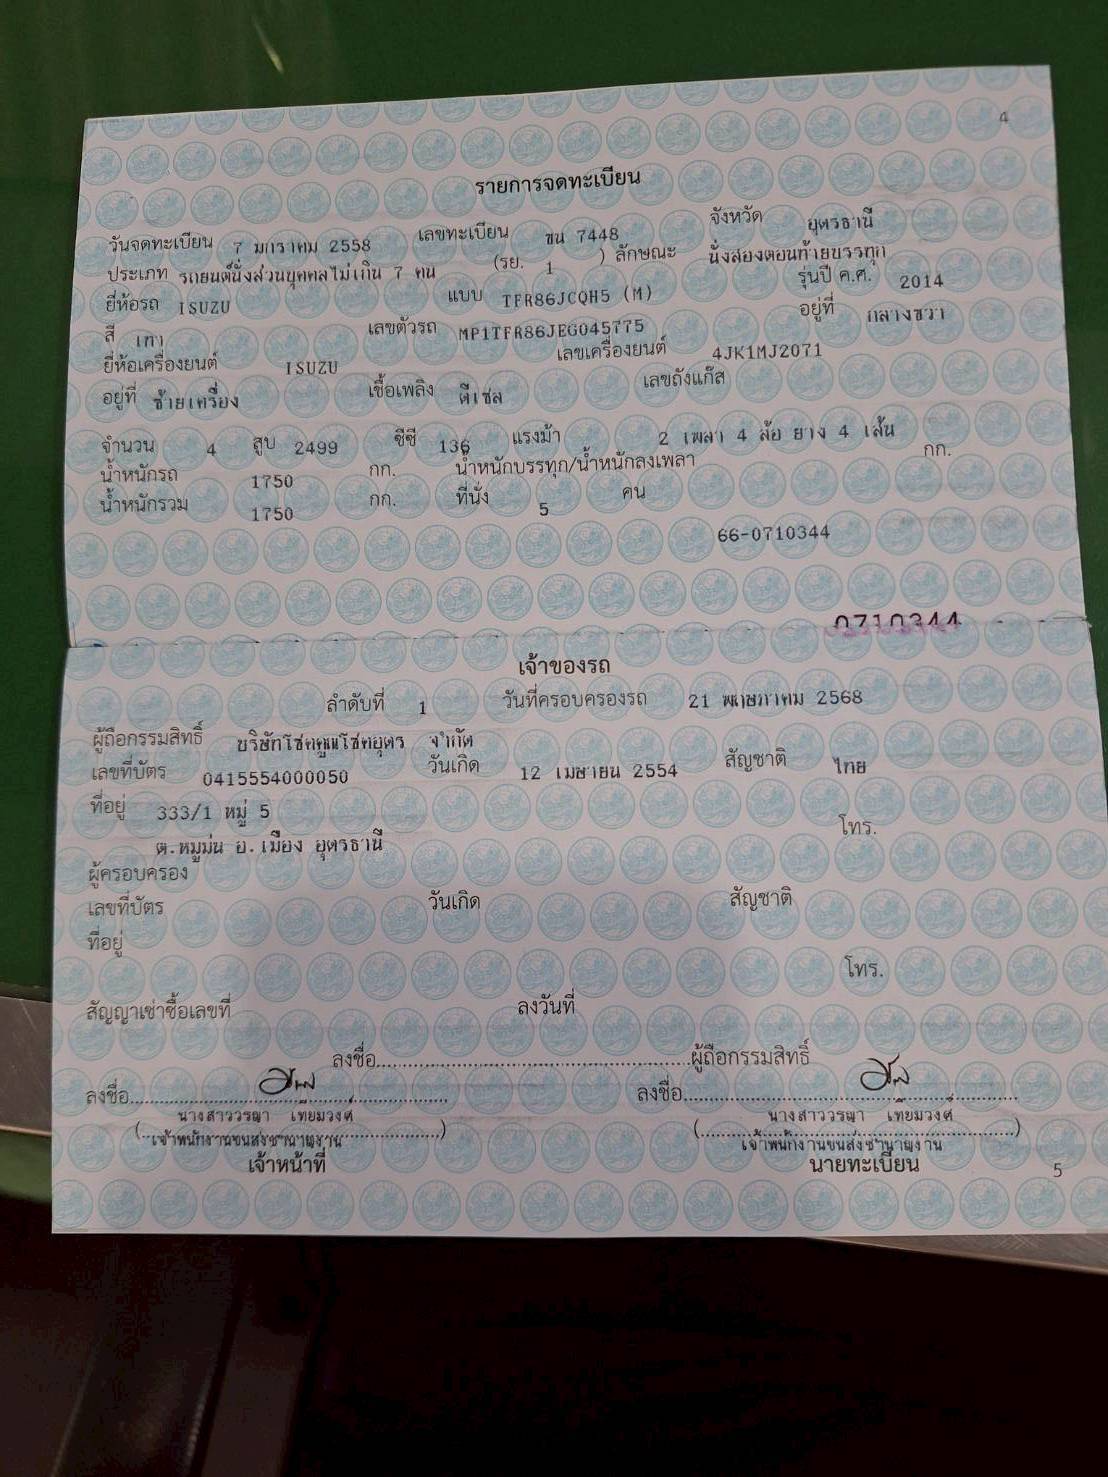 4
รายการจดทะเบียน
วันจดทะเบียน 7 มกราคม 2558 เลขทะเบียน ขน 7448 จังหวัด อุดรธานี
ประเภท รถยนต์นั่งส่วนบุคคลไม่เกิน 7 คน (รย. 1 ) ลักษณะ นั่งสองตอนท้ายบรรทุก
ยี่ห้อรถ ISUZU แบบ TFR86JCQH5 (M) รุ่นปี ค.ศ. 2014
สี เทา เลขตัวรถ MP1TFR86JEG045775 อยู่ที่ กลางขวา
ยี่ห้อเครื่องยนต์ ISUZU เลขเครื่องยนต์ 4JK1MJ2071
อยู่ที่ ซ้ายเครื่อง เชื้อเพลิง ดีเซล เลขถังแก๊ส
จำนวน 4 สูบ 2499 ซีซี 136 แรงม้า 2 เพลา 4 ล้อ ยาง 4 เส้น
น้ำหนักรถ 1750 กก. น้ำหนักบรรทุก/น้ำหนักลงเพลา กก.
น้ำหนักรวม 1750 กก. ที่นั่ง 5 คน
66-0710344
0710344
เจ้าของรถ
ลำดับที่ 1 วันที่ครอบครองรถ 21 พฤษภาคม 2568
ผู้ถือกรรมสิทธิ์ บริษัทโชคคูณโชคอุดร จำกัด
เลขที่บัตร 0415554000050 วันเกิด 12 เมษายน 2554 สัญชาติ ไทย
ที่อยู่ 333/1 หมู่ 5 โทร.
ต.หมูม่น อ.เมือง อุดรธานี
ผู้ครอบครอง
เลขที่บัตร วันเกิด สัญชาติ
ที่อยู่
โทร.
สัญญาเช่าซื้อเลขที่ ลงวันที่
ลงชื่อ....................ผู้ถือกรรมสิทธิ์
ลงชื่อ.................... ลงชื่อ....................
นางสาววรญา เทียมวงศ์ นางสาววรญา เทียมวงศ์
(เจ้าพนักงานขนส่งชำนาญงาน) (เจ้าพนักงานขนส่งชำนาญงาน)
เจ้าหน้าที่ นายทะเบียน
5